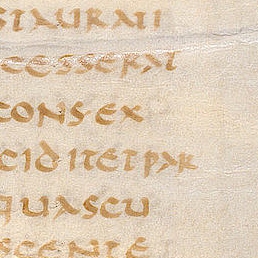 STAURATI
CESSERAT
CONSEX
CIDITETPAR
QUASCU
SCENTE